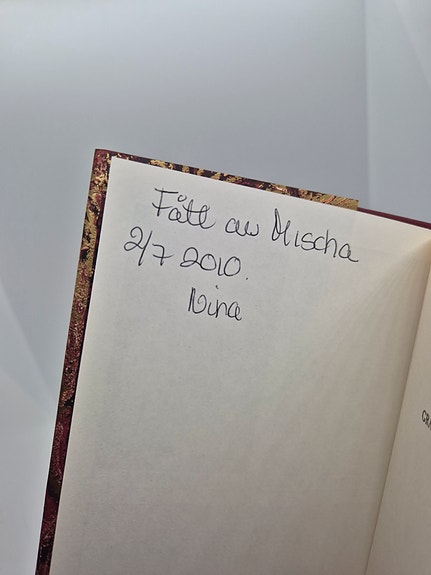 Fått av Mischa
2/7 2010.
Nina